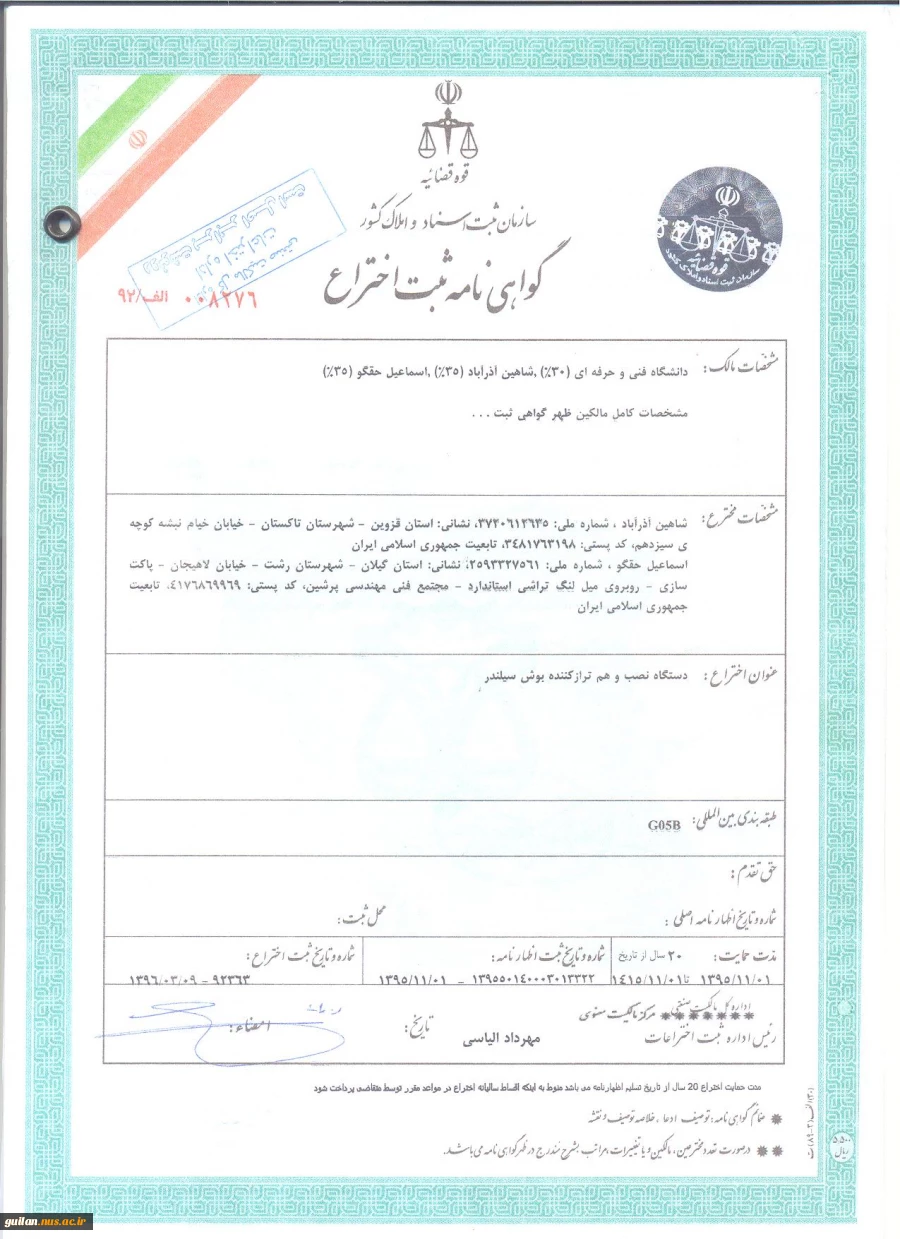 قوه قضائیه
سازمان ثبت اسناد و املاک کشور
گواهی نامه ثبت اختراع
الف/۹۲ ۰۰۸۲۷۶
قوه قضائیه
سازمان ثبت اسناد و املاک کشور
مشخصات مالک: دانشگاه فنی و حرفه ای (۳۰٪) ,شاهین آذرآباد (۳۵٪) ,اسماعیل حقگو (۳۵٪)
مشخصات کامل مالکین ظهر گواهی ثبت . . .
مشخصات مخترع: شاهین آذرآباد ، شماره ملی: ۳۷۲۰۶۱۲۶۳۵، نشانی: استان قزوین - شهرستان تاکستان - خیابان خیام نبشه کوچه
ی سیزدهم، کد پستی: ۳۴۸۱۷۶۳۱۹۸، تابعیت جمهوری اسلامی ایران
اسماعیل حقگو ، شماره ملی: ۲۵۹۳۳۲۷۵۶۱، نشانی: استان گیلان - شهرستان رشت - خیابان لاهیجان - پاکت
سازی - روبروی میل لنگ تراشی استاندارد - مجتمع فنی مهندسی پرشین، کد پستی: ۴۱۷۶۸۶۹۹۶۹، تابعیت
جمهوری اسلامی ایران
عنوان اختراع: دستگاه نصب و هم ترازکننده بوش سیلندر
طبقه بندی بین المللی: G05B
حق تقدم:
شماره و تاریخ اظهارنامه اصلی: محل ثبت:
مدت حمایت: ۲۰ سال از تاریخ شماره و تاریخ ثبت اظهارنامه: شماره و تاریخ ثبت اختراع:
۱۳۹۵/۱۱/۰۱ تا ۱۴۱۵/۱۱/۰۱ ۱۳۹۵۵۰۱۴۰۰۰۳۰۱۳۳۲۲ - ۱۳۹۵/۱۱/۰۱ ۹۲۳۶۳ - ۱۳۹۶/۰۳/۰۹
اداره کل مالکیت صنعتی مرکز مالکیت معنوی
رئیس اداره ثبت اختراعات مهرداد الیاسی تاریخ: امضاء:
مدت حمایت اختراع 20 سال از تاریخ تسلیم اظهارنامه می باشد منوط به اینکه اقساط سالیانه اختراع در مواعد مقرر توسط متقاضی پرداخت شود
ضمائم گواهی نامه: توصیف، ادعا، خلاصه توصیف و نقشه
درصورت تعدد مخترعین، مالکین و یا تغییرات، مراتب بشرح مندرج در ظهر گواهی نامه می باشد.
۵۵۰۰
ریال
guilan.nus.ac.ir